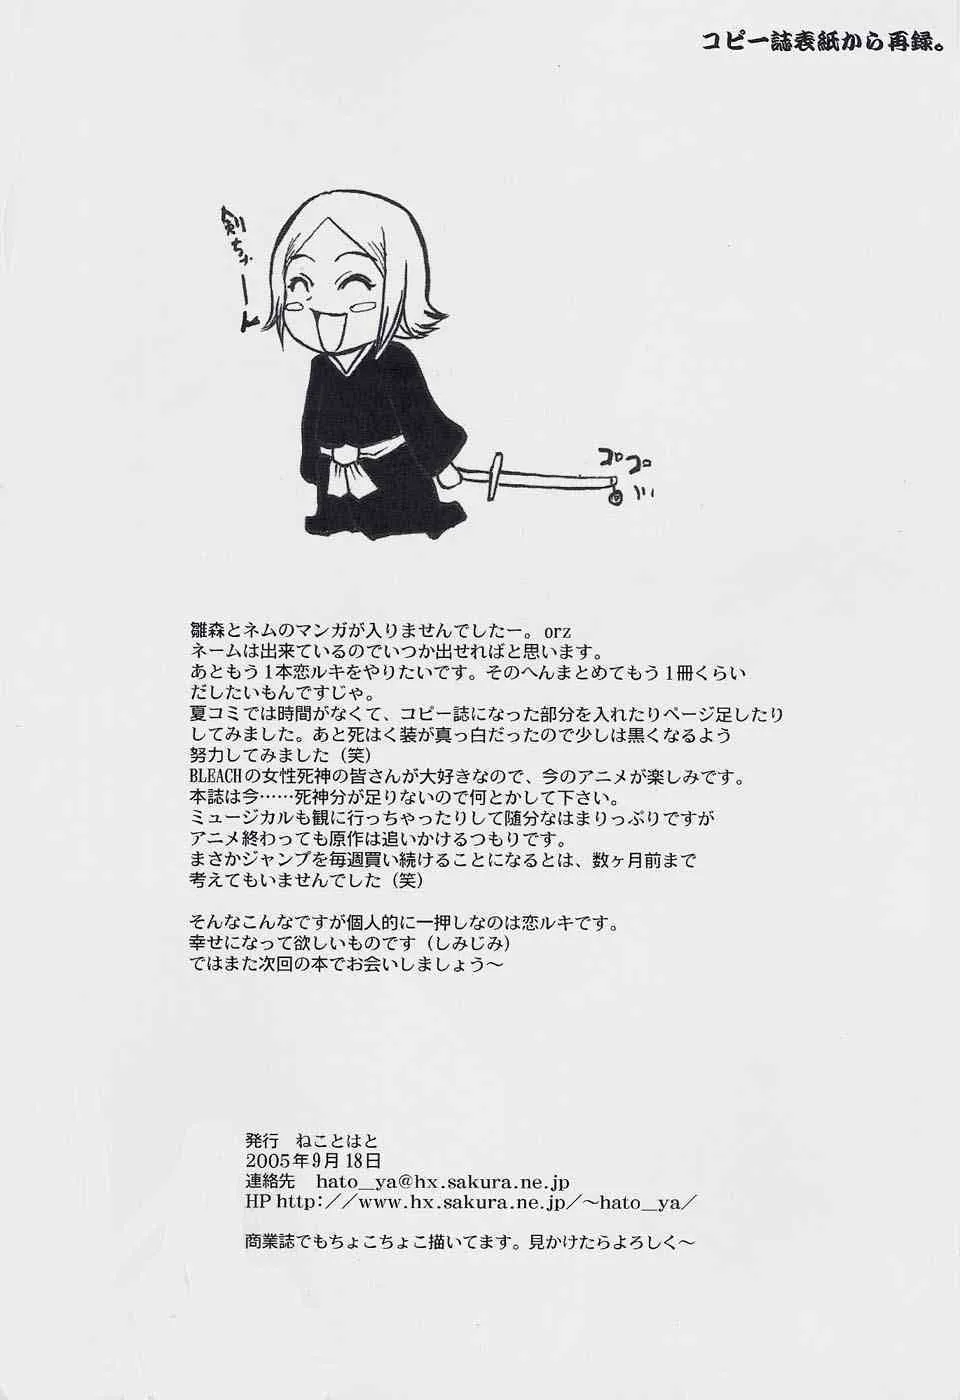 コピー誌表紙から再録。
剣ちゃーん
コロコロ
雛森とネムのマンガが入りませんでしたー。orz
ネームは出来ているのでいつか出せればと思います。
あともう１本恋ルキをやりたいです。そのへんまとめてもう１冊くらい
だしたいもんですじゃ。
夏コミでは時間がなくて、コピー誌になった部分を入れたりページ足したり
してみました。あと死はく装が真っ白だったので少しは黒くなるよう
努力してみました（笑）
BLEACHの女性死神の皆さんが大好きなので、今のアニメが楽しみです。
本誌は今……死神分が足りないので何とかして下さい。
ミュージカルも観に行っちゃったりして随分なはまりっぷりですが
アニメ終わっても原作は追いかけるつもりです。
まさかジャンプを毎週買い続けることになるとは、数ヶ月前まで
考えてもいませんでした（笑）
そんなこんなですが個人的に一押しなのは恋ルキです。
幸せになって欲しいものです（しみじみ）
ではまた次回の本でお会いしましょう～
発行　ねことはと
2005年9月18日
連絡先　hato__ya@hx.sakura.ne.jp
HP http://www.hx.sakura.ne.jp/～hato__ya/
商業誌でもちょこちょこ描いてます。見かけたらよろしく～